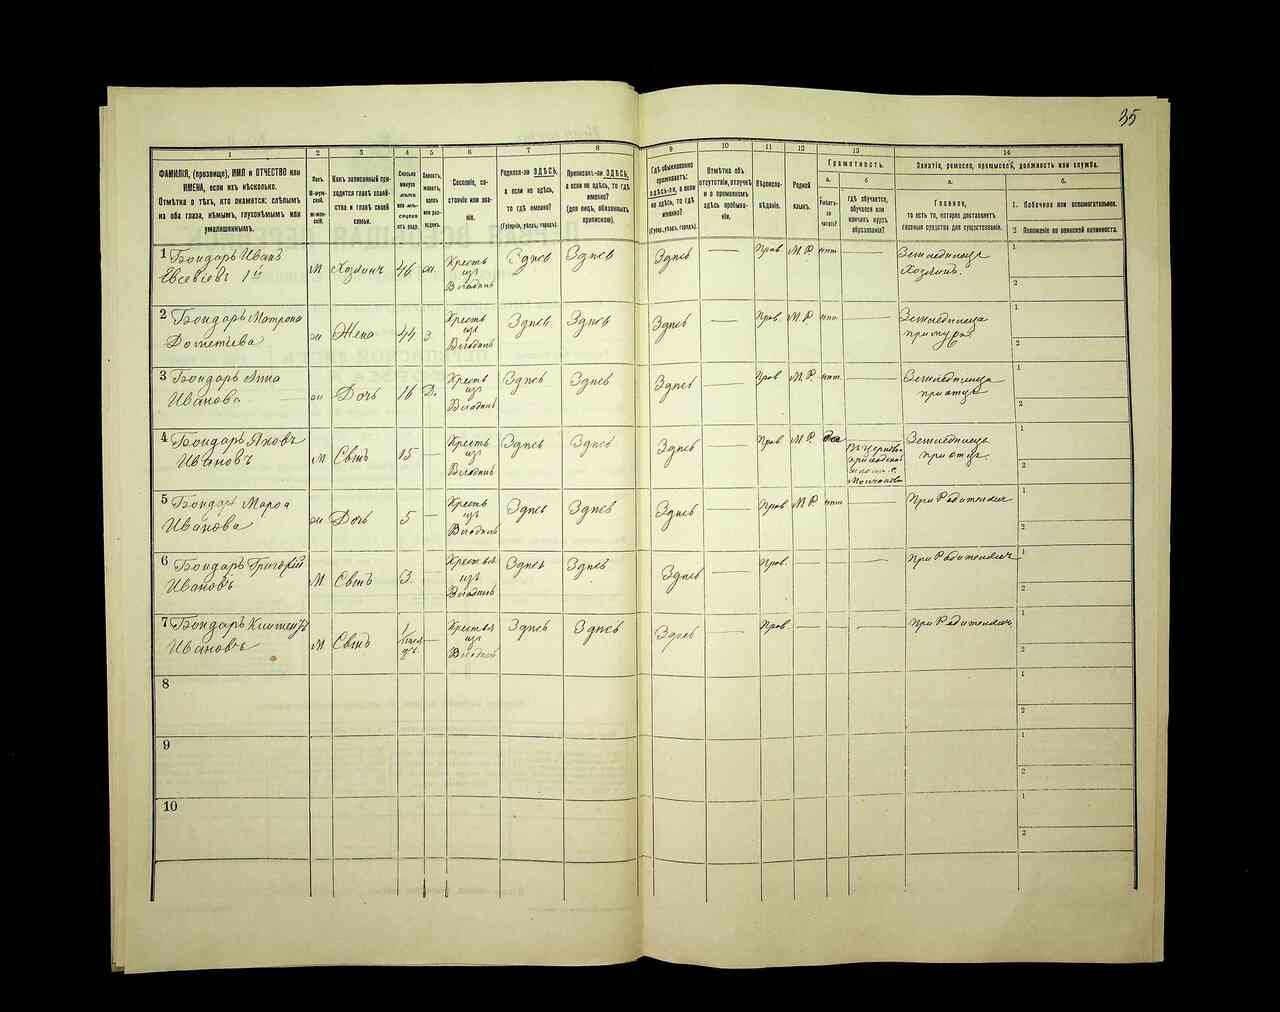 35
1 2 3 4 5 6 7 8 9 10 11 12 13 14
ФАМИЛІЯ, (прозвище), ИМЯ и ОТЧЕСТВО или
ИМЕНА, если ихъ нѣсколько.
Отмѣтка о тѣхъ, кто окажется: слѣпымъ
на оба глаза, нѣмымъ, глухонѣмымъ или
умалишеннымъ.
Полъ.
М-муж-
ской.
Ж-жен-
скій.
Какъ записанный при-
ходится главѣ хозяй-
ства и главѣ своей
семьи.
Сколько
минуло
лѣтъ
или мѣ-
сяцевъ
отъ роду.
Холостъ,
женатъ,
вдовъ
или раз-
веденъ.
Сословіе, со-
стояніе или зва-
ніе.
Родился-ли ЗДѢСЬ,
а если не здѣсь,
то гдѣ именно?
(Губернія, уѣздъ, городъ).
Приписанъ-ли ЗДѢСЬ,
а если не здѣсь, то гдѣ
именно?
(для лицъ, обязанныхъ
припискою).
Гдѣ обыкновенно
проживаетъ:
здѣсь-ли, а если
не здѣсь, то гдѣ
именно?
(Губерн., уѣздъ, городъ).
Отмѣтка объ
отсутствіи, отлучкѣ
и о временномъ
здѣсь пребыва-
ніи.
Вѣроиспо-
вѣданіе.
Родной
языкъ.
Грамотность.
а.
Умѣетъ-
ли
читать?
б
гдѣ обучается,
обучался или
кончилъ курсъ
образованія?
Занятіе, ремесло, промыселъ, должность или служба.
а.
Главное,
то есть то, которое доставляетъ
главныя средства для существованія.
б.
1. Побочное или вспомогательное.
2 Положеніе по воинской повинности.
1 Бондарь Иванъ
Евсевіевъ 1й
М Хозяинъ 46 ж. Крестъ из Владѣль Здѣсь Здѣсь Здѣсь — Прав М.Р. нѣтъ — Земледѣлецъ
Хозяинъ.
2 Бондарь Матрона
ж Жена 44 З Крестъ из Владѣль Здѣсь Здѣсь Здѣсь — Прав М.Р. нѣтъ — Земледѣлица
при мужѣ
3 Бондарь Анна
Иванова
ж Дочь 16 Д. Крестъ из Владѣль Здѣсь Здѣсь Здѣсь — Прав М.Р. нѣтъ — Земледѣлица
при отцѣ
4 Бондарь Яковъ
Ивановъ
М Сынъ 15 — Крестъ из Владѣль Здѣсь Здѣсь Здѣсь — Прав М.Р. Да Въ церковно
приходской
школѣ с.
Земледѣлецъ
при отцѣ.
5 Бондарь Марфа
Иванова
ж Дочь 5 — Крестъ из Владѣль Здѣсь Здѣсь Здѣсь — Прав М.Р. нѣтъ — При Родителяхъ
6 Бондарь Григорій
Ивановъ
М Сынъ 3 Крестья изъ Владѣль Здѣсь Здѣсь Здѣсь — Прав. — — — При Родителяхъ
7 Бондарь Климентъ
Ивановъ
М Сынъ 1 — Крестья из Владѣль Здѣсь Здѣсь Здѣсь — Прав. — — — При Родителяхъ
8
9
10